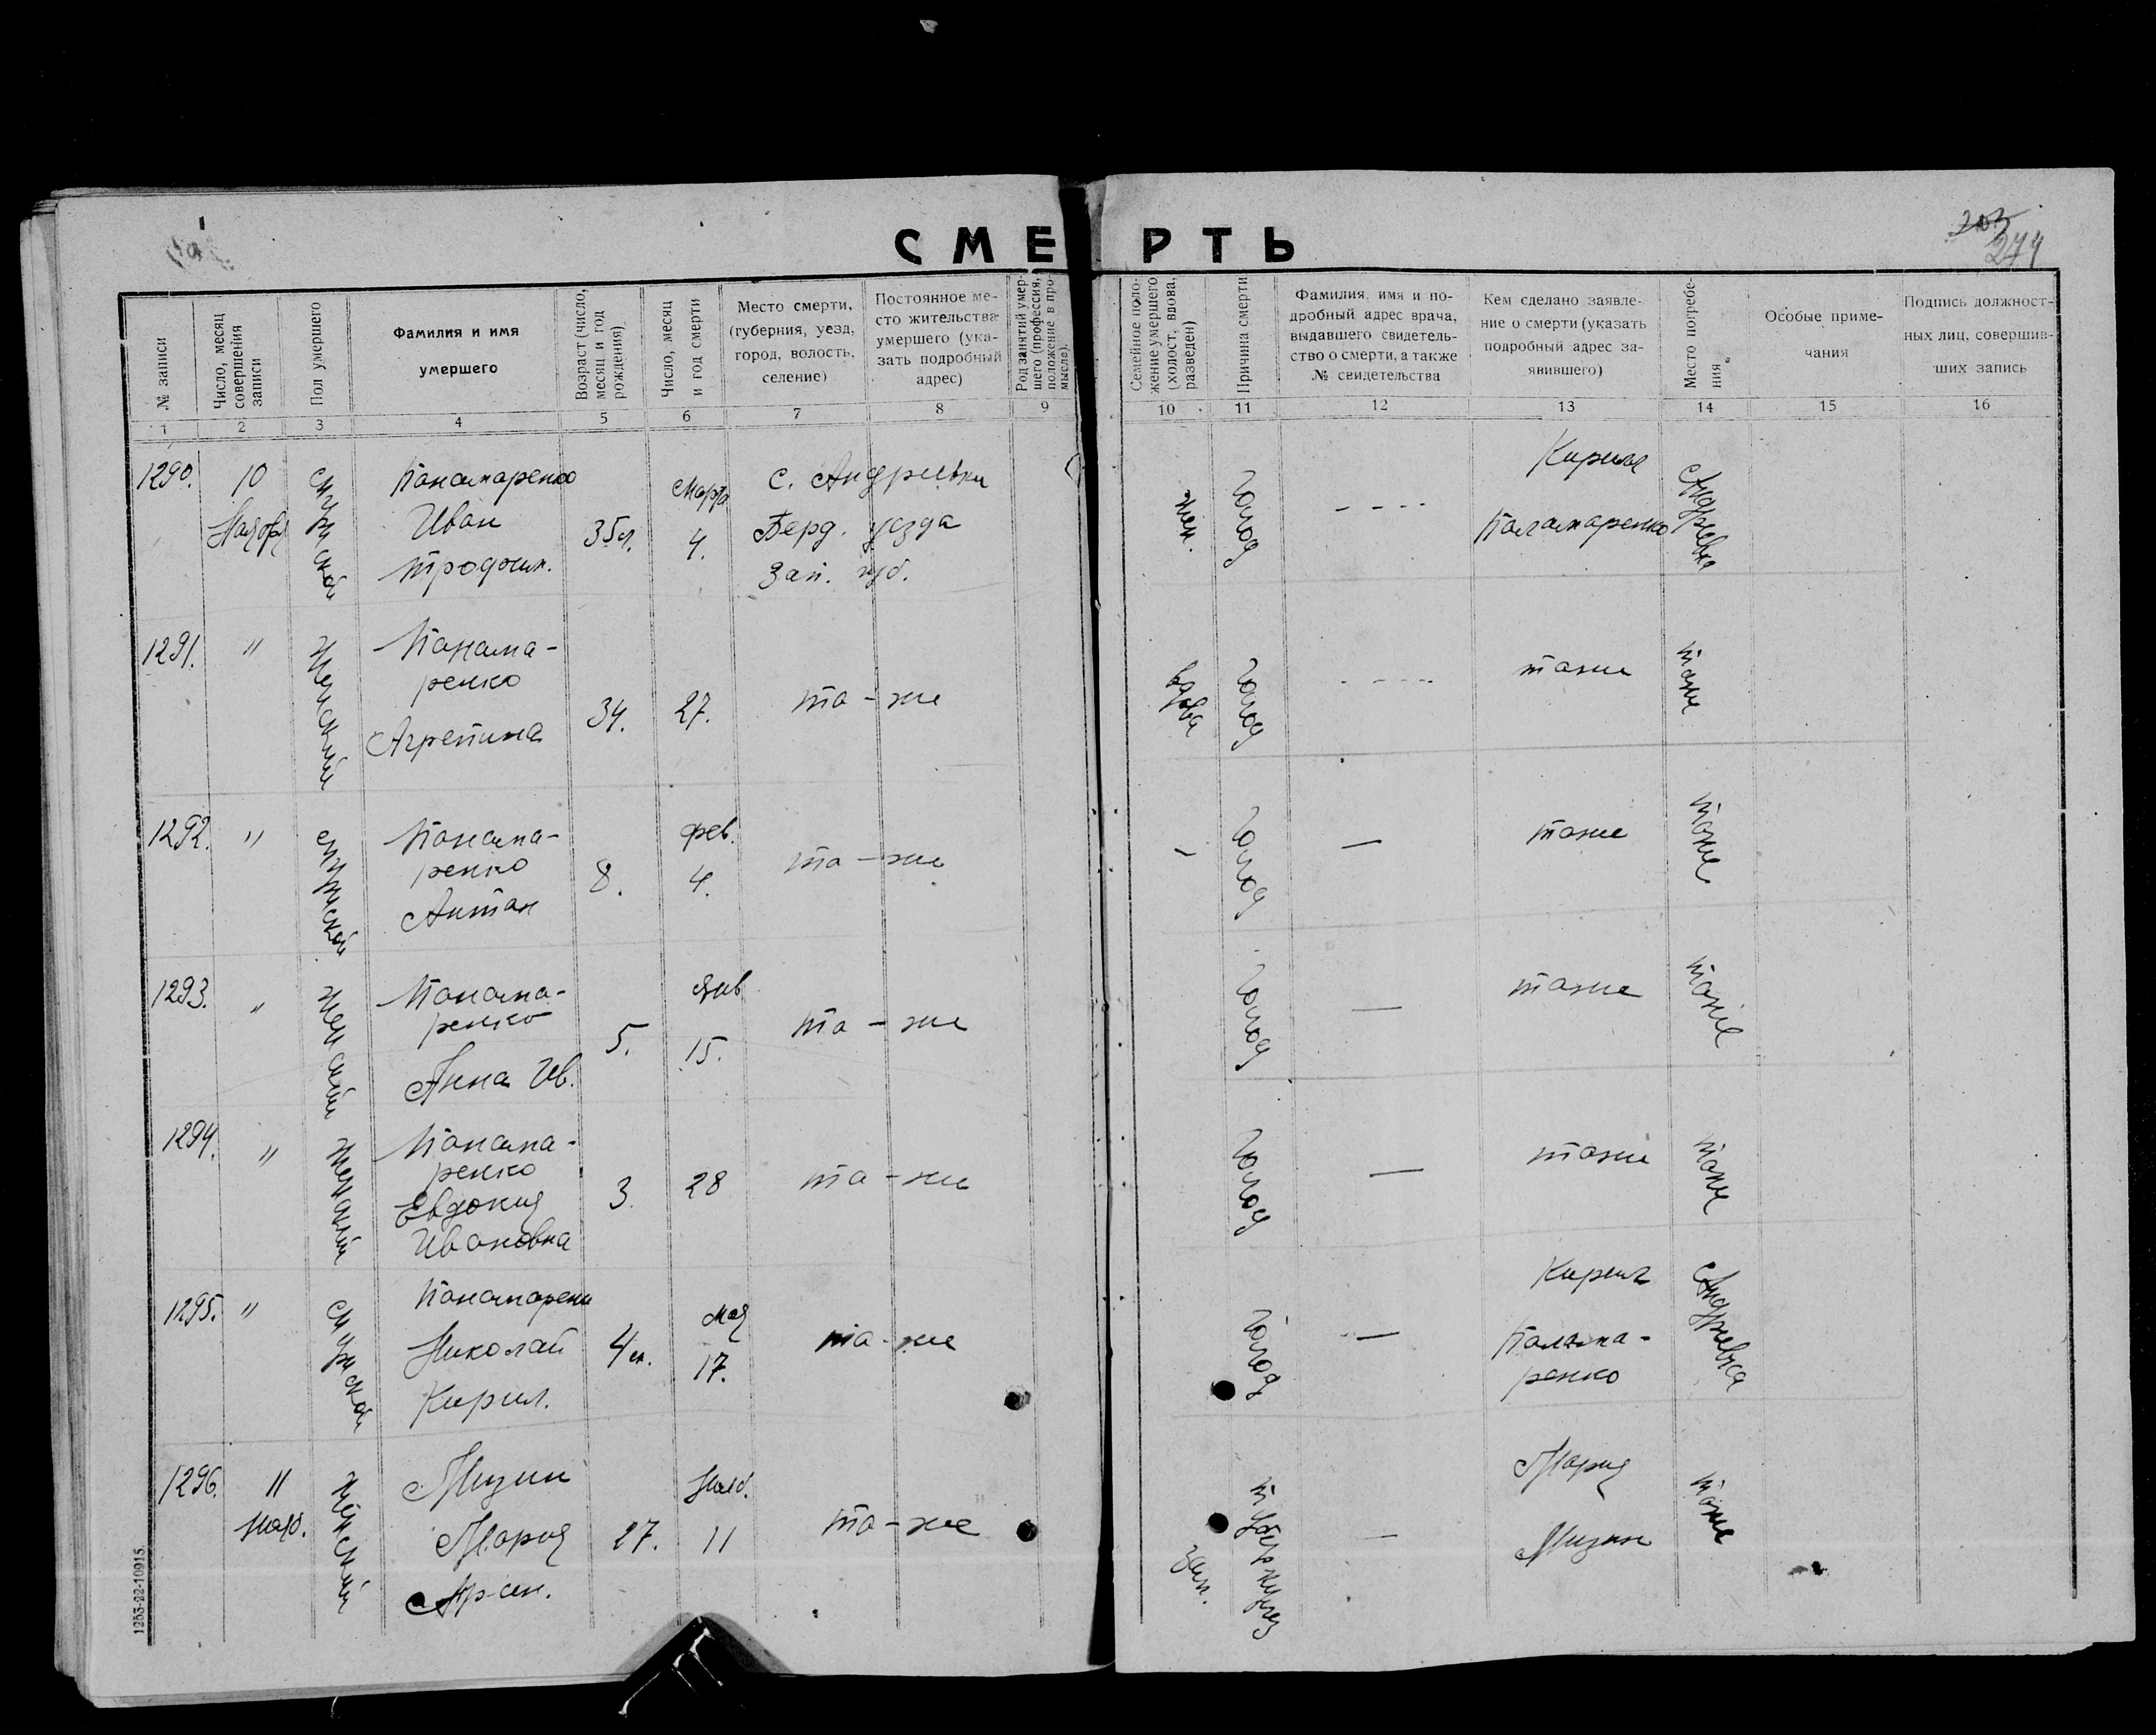 203
274
СМЕРТЬ
№ записи
Число, месяц
совершения
записи
Пол умершего
Фамилия и имя
умершего
Возраст (число,
месяц и год
рождения)
Число, месяц
и год смерти
Место смерти,
(губерния, уезд,
город, волость,
селение)
Постоянное ме-
сто жительства
умершего (ука-
зать подробный
адрес)
Род занятий умер-
шего (профессия,
положение в про-
мысле).
Семейное поло-
жение умершего
(холост, вдова,
разведен)
Причина смерти
Фамилия, имя и по-
дробный адрес врача,
выдавшего свидетель-
ство о смерти, а также
№ свидетельства
Кем сделано заявле-
ние о смерти (указать
подробный адрес за-
явившего)
Место погребе-
ния
Особые приме-
чания
Подпись должност-
ных лиц, совершив-
ших запись
1 2 3 4 5 6 7 8 9 10 11 12 13 14 15 16
1290. 10 Ноября
мужской
Панамаренко
Иван
Трофим.
35 л.
Марта
4.
с. Андреевка
Берд. уезда
Зап. губ.
жен.
голод
- - - -
Кирилл
Паламаренко
Андреевка
1291. "
женский
Панама-
ренко
Агрепина
34. 27. та-же
вдова
голод
- - - -
тоже
тоже
1292. "
мужской
Панама-
ренко
Антон
8.
фев.
4.
та-же
-
голод
—
тоже
тоже
1293. "
женский
Панама-
ренко
Анна Ив.
5.
Янв
15.
та-же
голод
—
тоже
тоже
1294. "
женский
Панама-
ренко
Евдокия
Ивановна
3. 28 та-же
голод
—
тоже
тоже
1295. "
мужской
Панамаренк
Николай
Кирил.
4 м.
мая
17.
та-же
голод
—
Кирил
Палама-
ренко
Андреевка
1296. 11
нояб.
женский
Мизин
Мария
27.
Нояб.
11
та-же
зам.
туберкулез
—
Мария
Мизин
тоже
1253-22-10915.